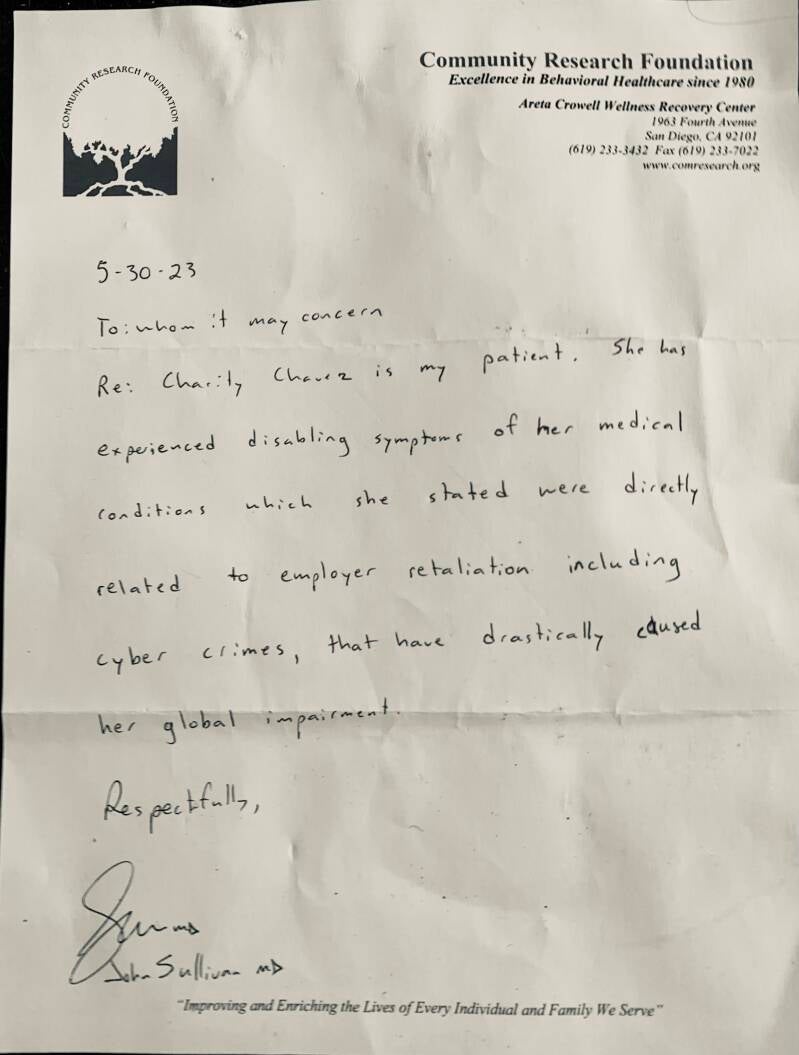 COMMUNITY RESEARCH FOUNDATION
Community Research Foundation
Excellence in Behavioral Healthcare since 1980
Areta Crowell Wellness Recovery Center
1963 Fourth Avenue
San Diego, CA 92101
(619) 233-3432 Fax (619) 233-7022
www.comresearch.org
5-30-23
To: whom it may concern
Re: Charity Chavez is my patient. She has
experienced disabling symptoms of her medical
conditions which she stated were directly
related to employer retaliation including
cyber crimes, that have drastically caused
her global impairment.
Respectfully,
MD
John Sullivan MD
"Improving and Enriching the Lives of Every Individual and Family We Serve"